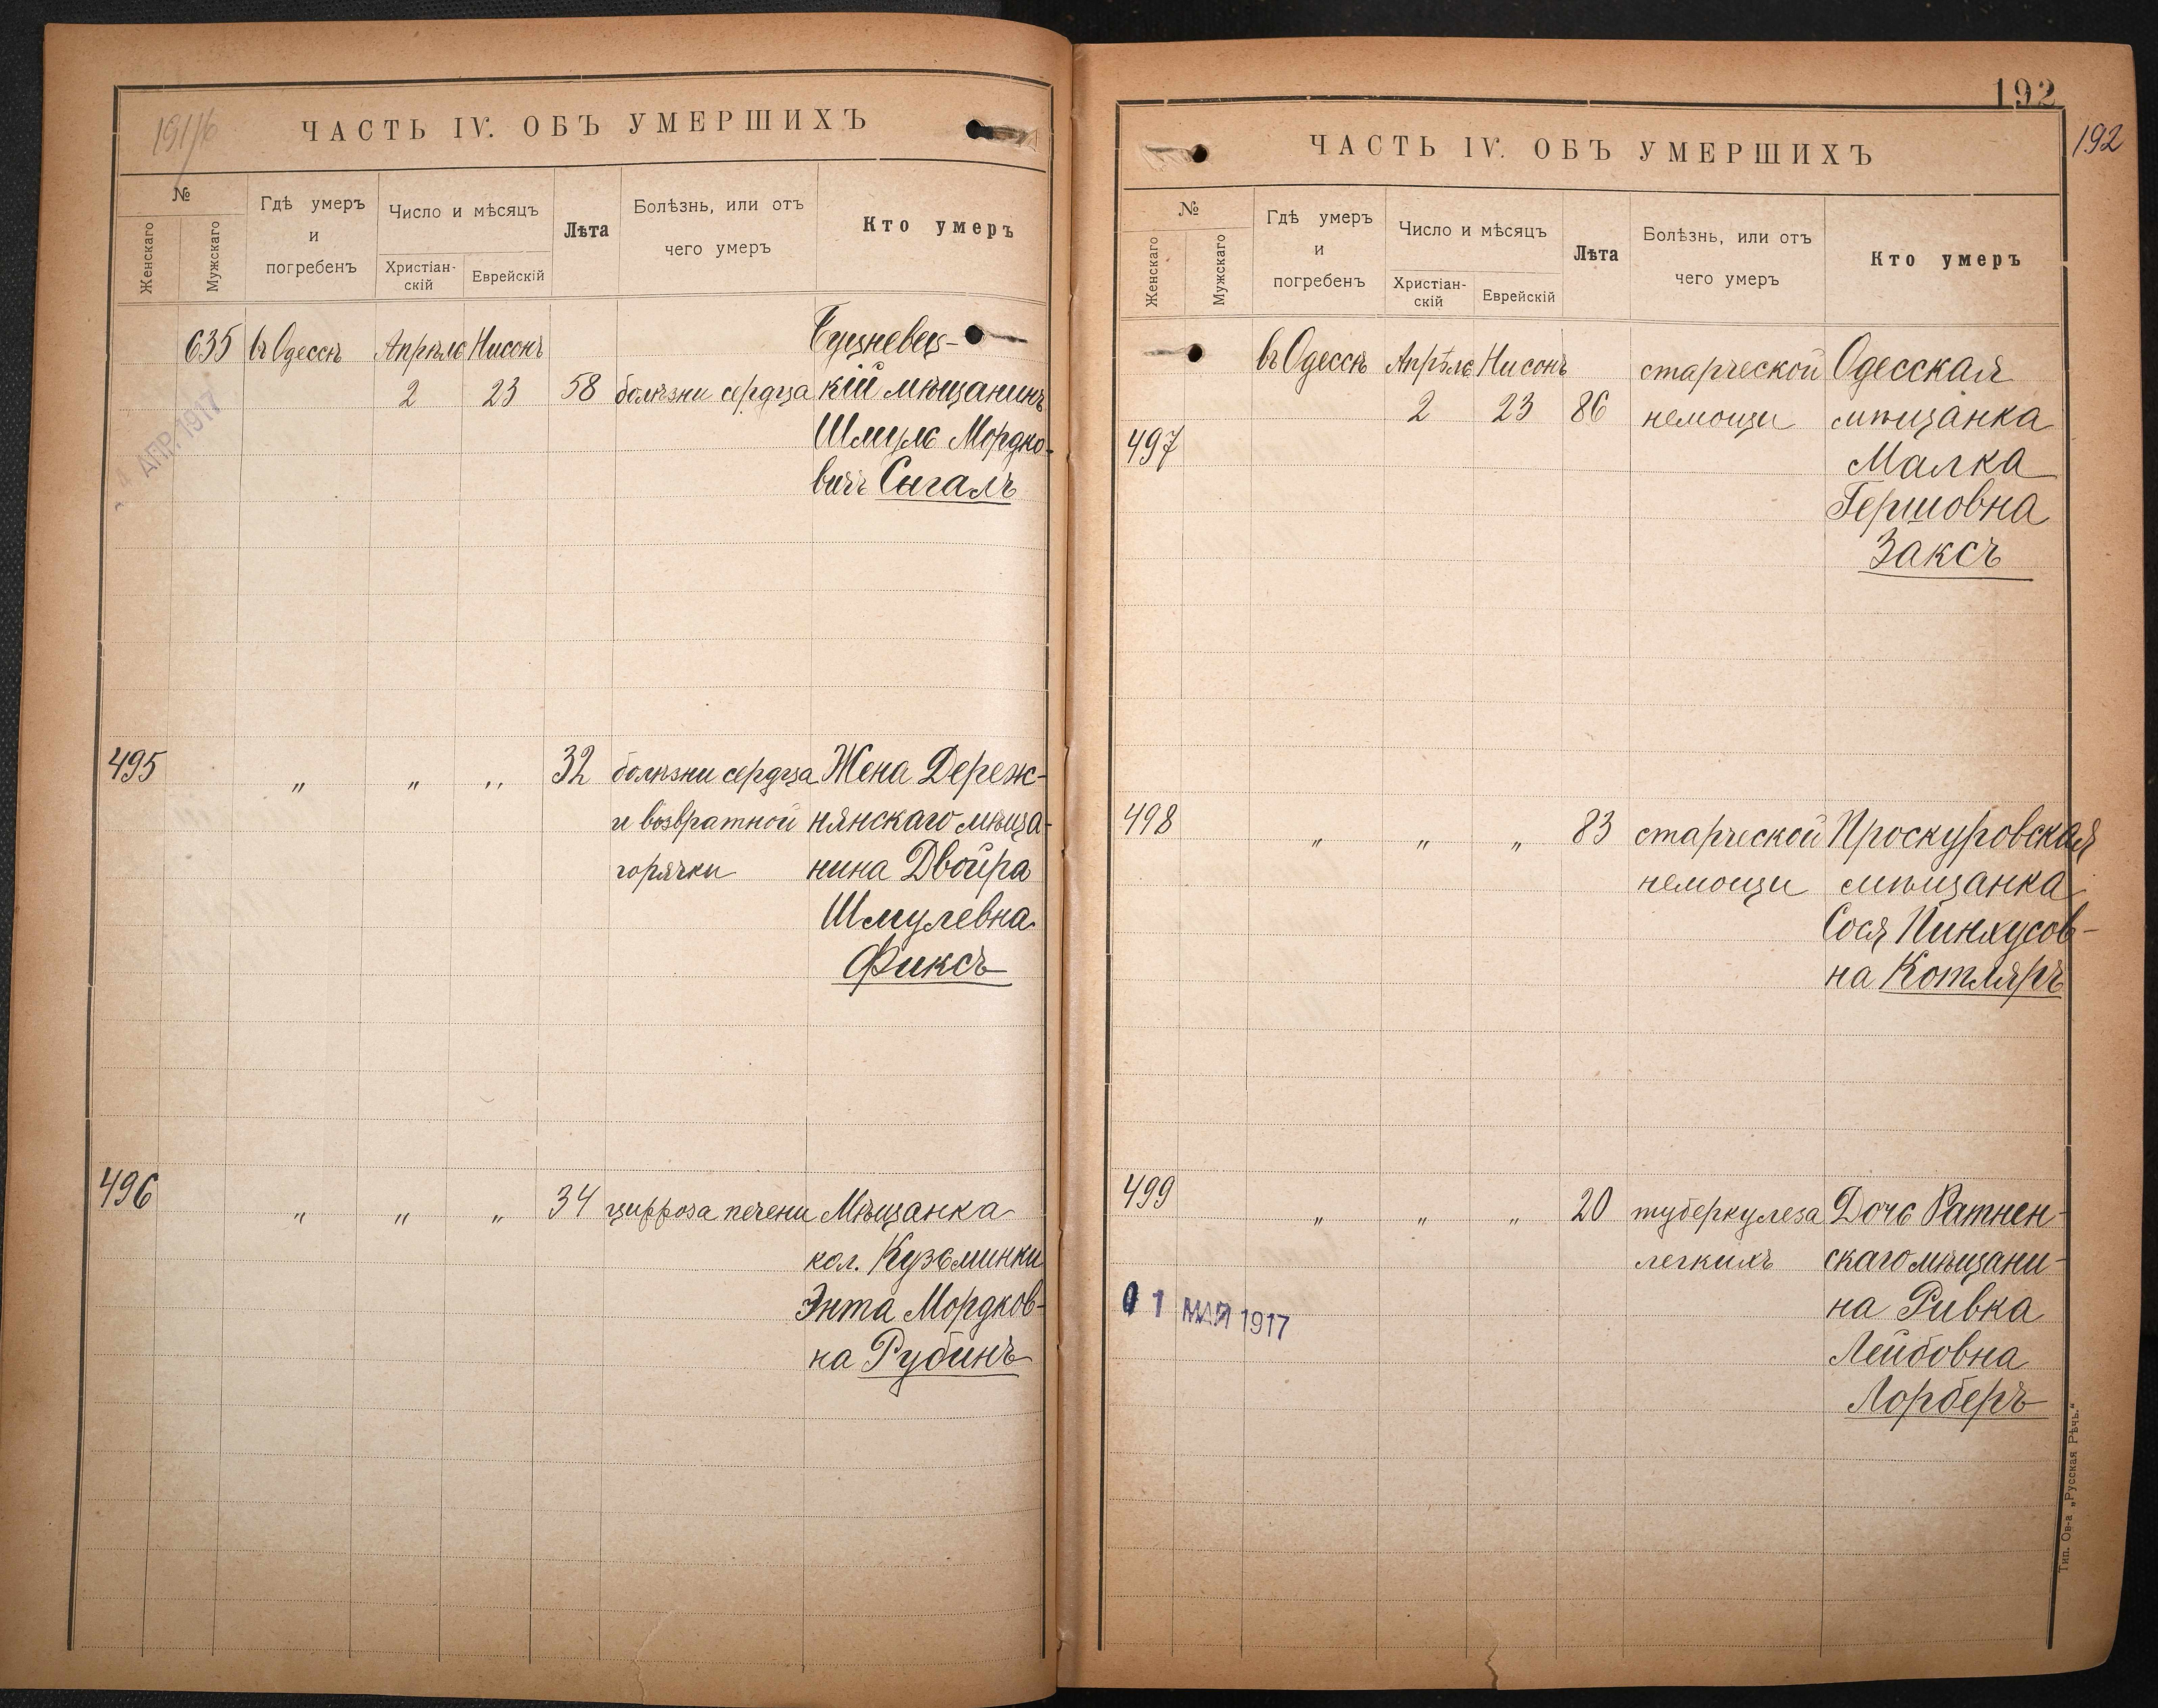 191/6
ЧАСТЬ IV. ОБЪ УМЕРШИХЪ
№
Женскаго
Мужскаго
Гдѣ умеръ
и
погребенъ
Число и мѣсяцъ
Христіан-
скій
Еврейскій
Лѣта
Болѣзнь, или отъ
чего умеръ
Кто умеръ
635 въ Одессѣ Апрѣль Нисонъ
2 23 58 болѣзни сердца кій мѣщанинъ
Шмуль Мордко-
вичъ Сыгалъ
4 АПР. 1917
495 „ „ „ 32 болѣзни сердца Жена Дереж-
и возвратной нянскаго мѣща-
горячки нина Двойра
Шмулевна
Фиксъ
496 „ „ „ 34 цирроза печени Мѣщанка
кол. Кузьминки
Энта Мордков-
на Рубинъ
192
192
ЧАСТЬ IV. ОБЪ УМЕРШИХЪ
№
Женскаго
Мужскаго
Гдѣ умеръ
и
погребенъ
Число и мѣсяцъ
Христіан-
скій
Еврейскій
Лѣта
Болѣзнь, или отъ
чего умеръ
Кто умеръ
въ Одессѣ Апрѣль Нисонъ старческой Одесская
2 23 86 немощи мѣщанка
497 Малка
Гершовна
Заксъ
498 „ „ „ 83 старческой Проскуровская
немощи мѣщанка
Сося Пинхусов-
на Котляръ
499 „ „ „ 20 туберкулеза Дочь Ратнен-
легкихъ скаго мѣщани-
на Ривка
Лейбовна
Лорберъ
01 МАЯ 1917
Тип. Ов-а „Русская Рѣчь.“